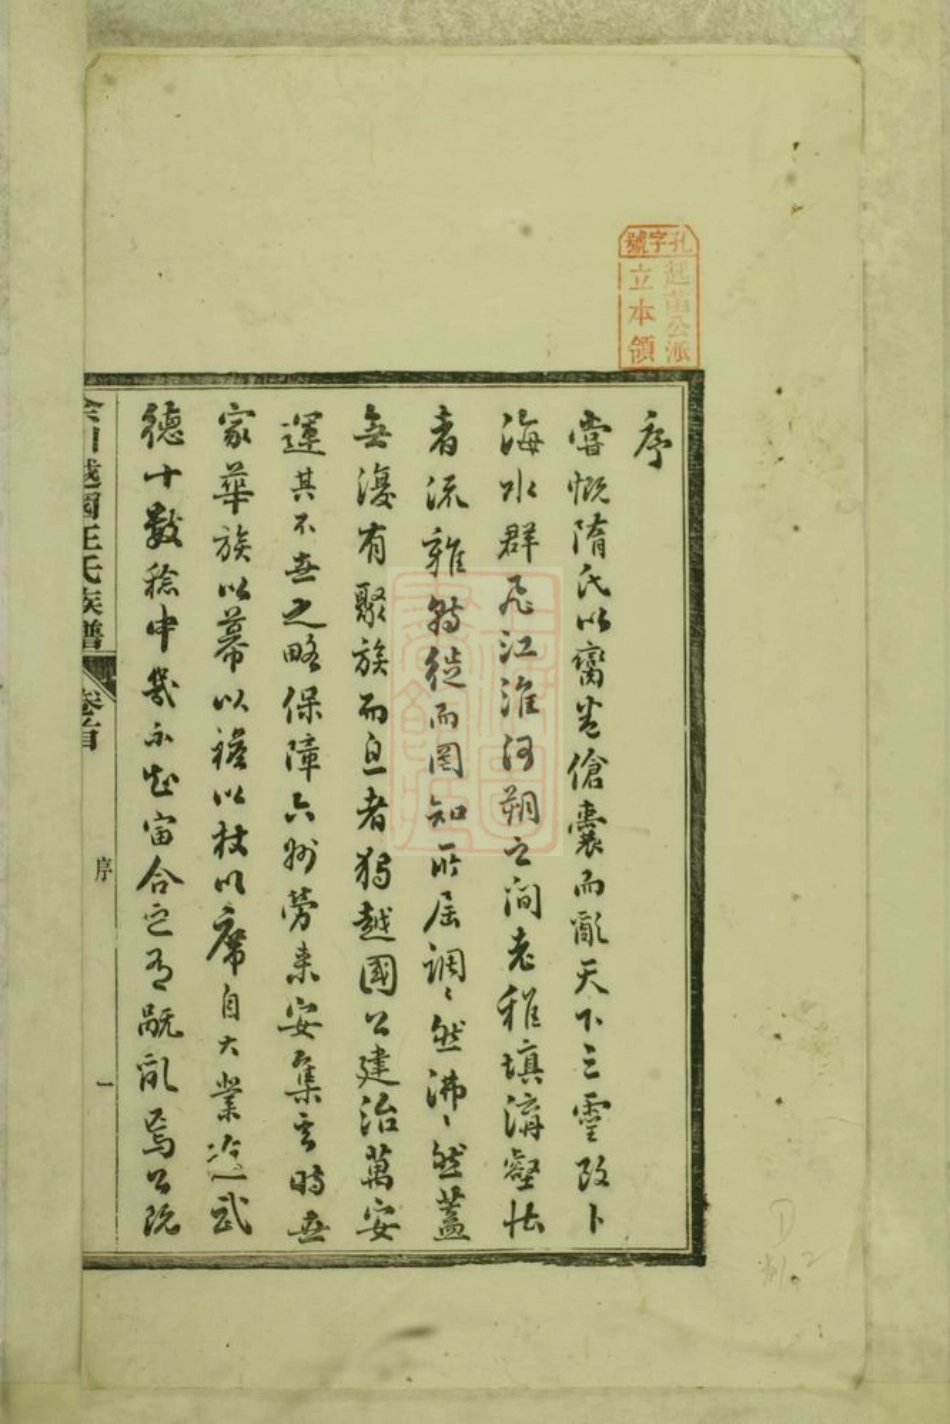 孔字號
起莆公派
立本領
序
嘗慨隋氏以臠卷傖囊而亂天下三靈改卜
海水群飛江淮河朔之間老稚填溝壑壯
者流離轉徙而罔知所届調〻然沸〻然蓋
無復有聚族而息者獨越國公建治萬安
運其不世之略保障六州勞来安集當時無
家華族以幕以襜以杖以席自大業迄武
德十數稔中幾不知宙合之有亂焉公既
越國汪氏族譜
卷首
序
一